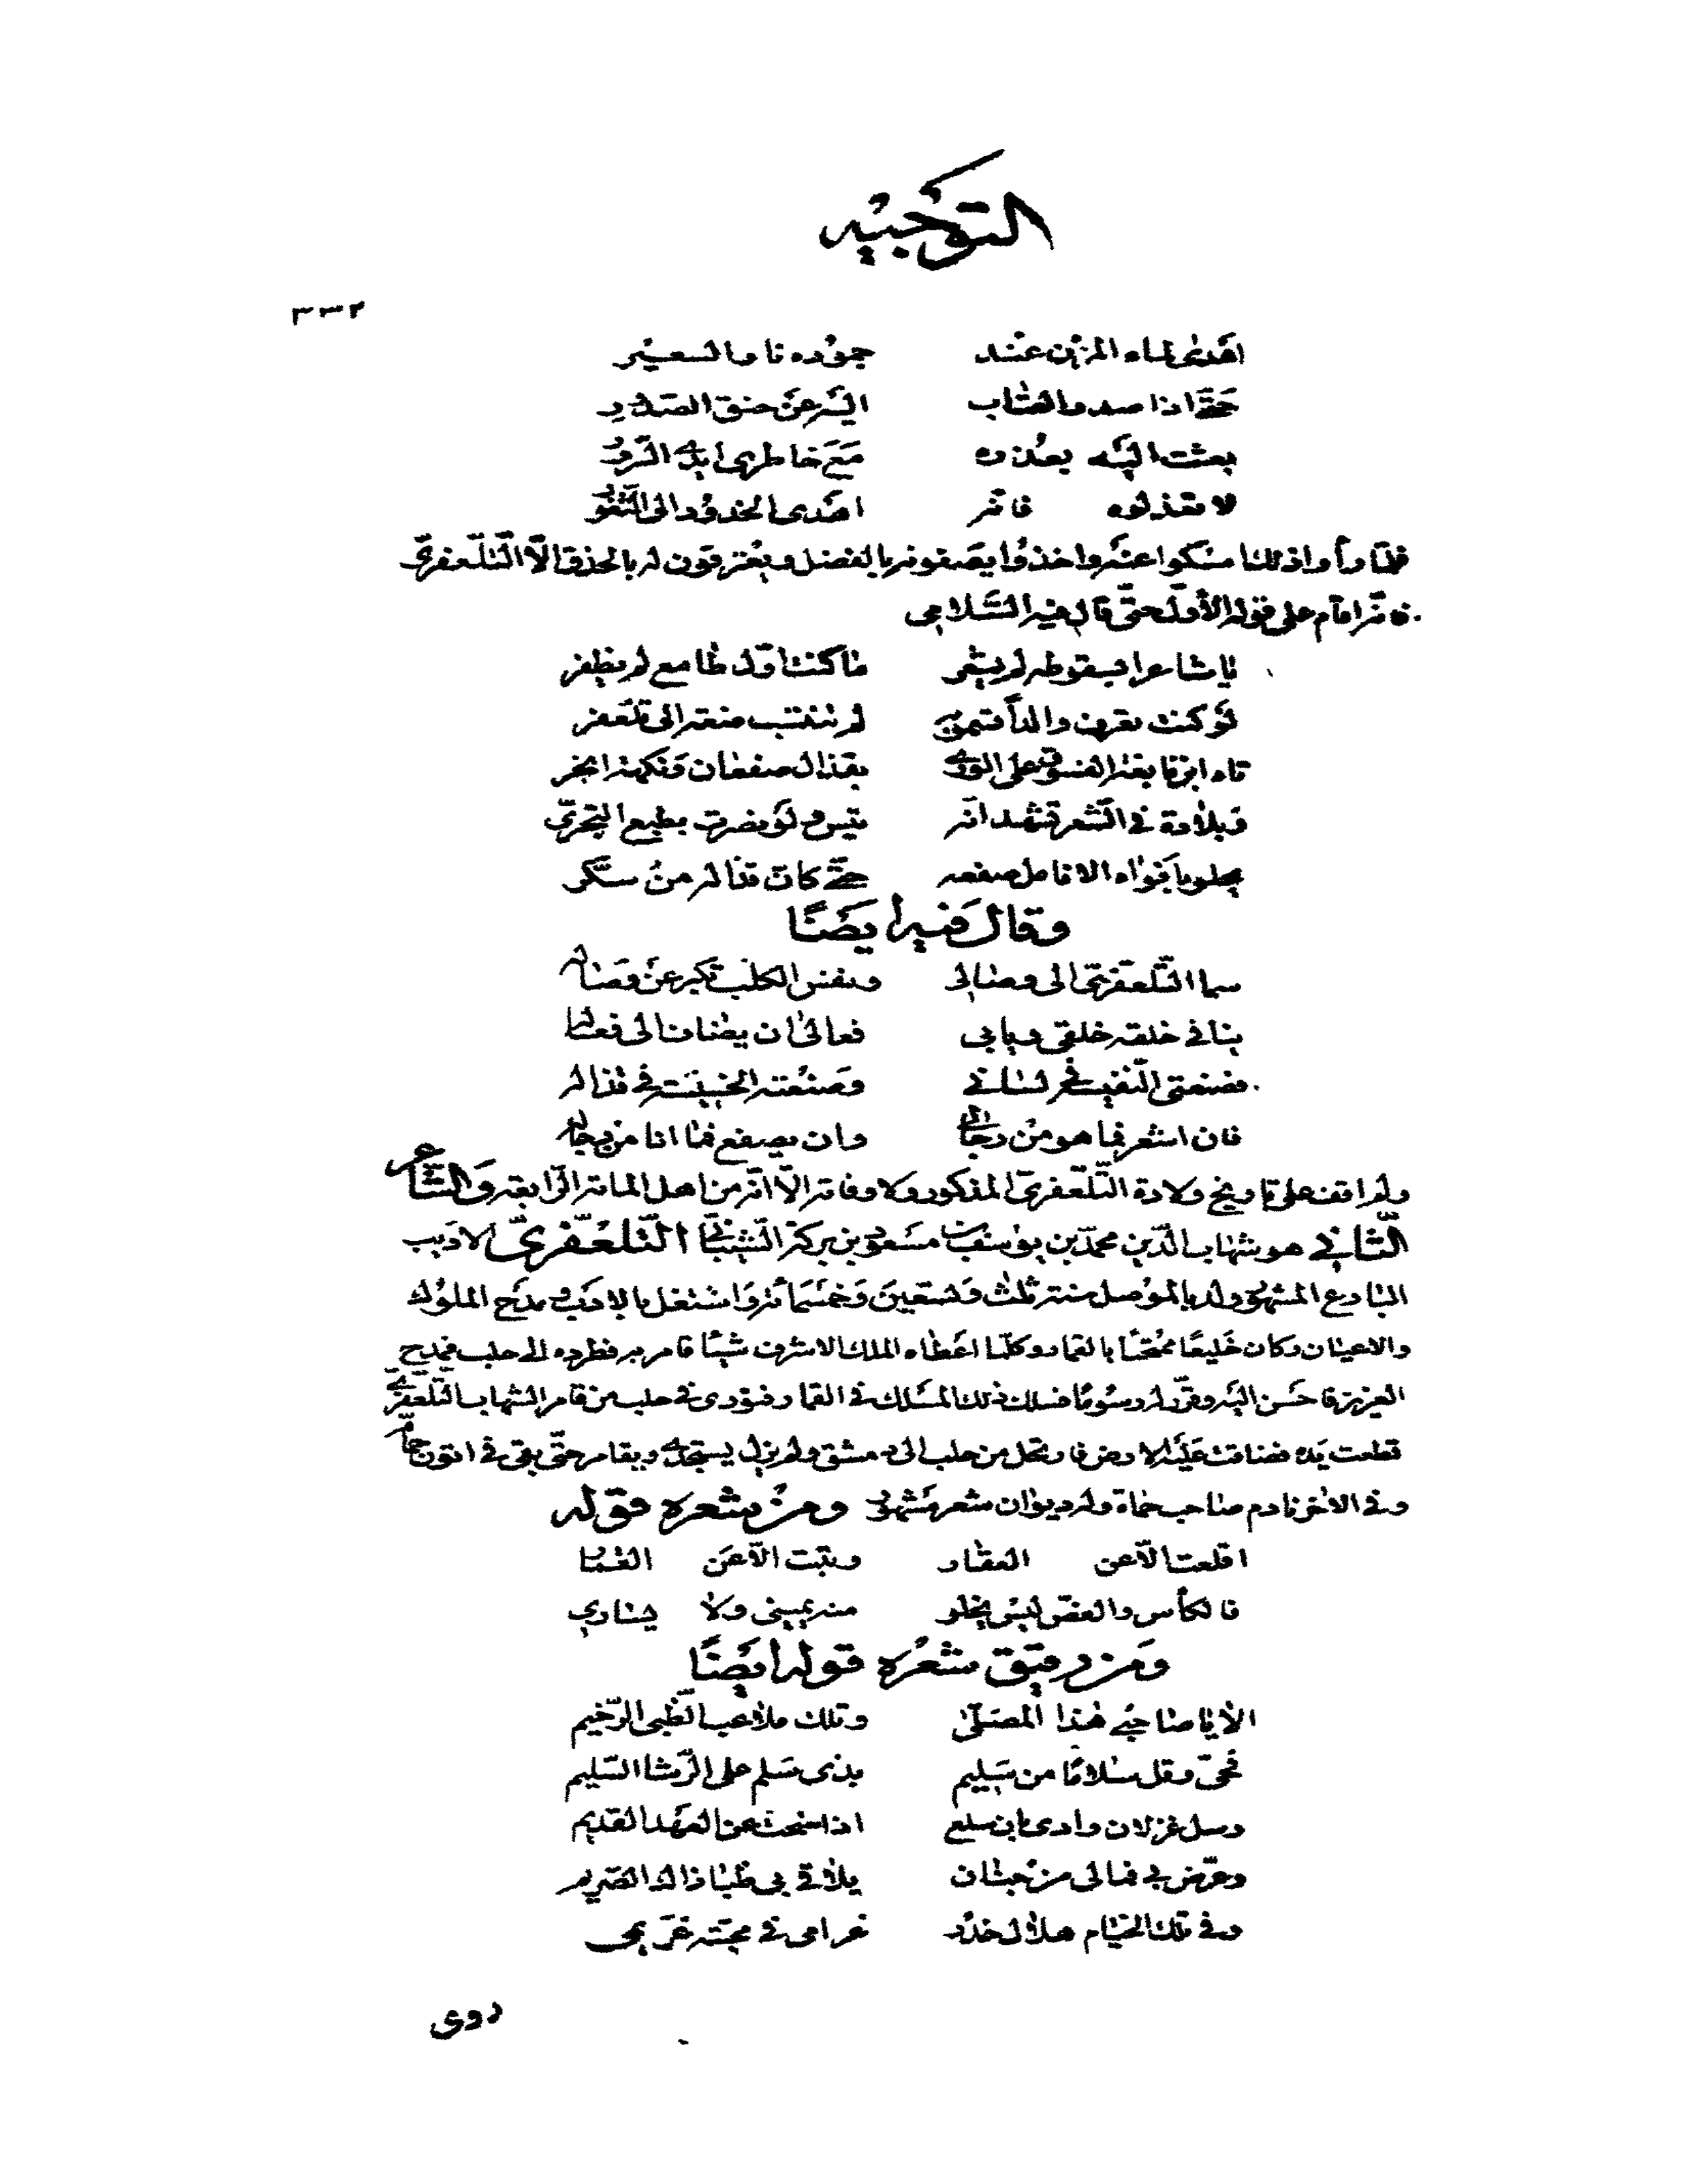 التوجيه
٣٣٢
اهدى لماء المزن عند جموده نار السعير
حتى اذا صدر العتاب اليه عن حنق الصدور
بعثت اليه بعذره مع خاطري ايدي السرور
لا تعذلوه فانه اهدى الخدود الى الثغور
فلما رأوا ذلك امسكوا عنه واخذوا يصفونه بالفضل ويعترفون له بالحذق الّا التلّعفريّ
فانه اقام على قوله الأول حتّى قال فيه السّلامي
يا شاعرا بسقوطه لم يشعر ما كنت اوّل طامع لم يظفر
لو كنت تعرف والداً تسمو به لم تنتسب صنعة الى تلّعفر
تاه ابن فايقة الفسوق على الورى بقذال صفعان ونكهة ابخر
وبلادة في الشعر تشهد انه تيس ولو نصرت بطبع البحتري
يحلو بافواه الانامل صفعه حتّى كان قذاله من سكّر
وقال فيه ايضًا
سما التّلعفريّ الى وصالي ونفس الكلب تكبر عن وصاله
ينافي خلقه خلقي ويابي فعالي ان يضاف الى فعاله
فصنعتي النّفيسة في لساني وصنعته الخسيسة في قذاله
فان اشعر فما هو من رجالي وان يصفع فما انا من رجاله
ولم اقف على تاريخ ولادة التّلّعفريّ المذكور ولا وفاته الّا انّه من اهل المائة الرّابعة والشّاعر
الثّاني هو شهاب الدّين محمّد بن يوسف بن مسعود بن بركة الشّيبانيّ التّلعّفريّ الاديب
البارع المشهور ولد بالموصل سنة ثلث وتسعين وخمسمائة واشتغل بالادب ومدح الملوك
والاعيان وكان خليعًا ممتحنًا بالقمار وكلّما اعطاه الملك الاشرف شيئًا قامر به فطرده الى حلب فمدح
العزيز فاحسن اليه وقرّر له رسومًا فسلك ذلك المسلك في القمار فنودي في حلب من قامر الشهاب التّلعفريّ
قطعت يده فضاقت عليه الارض فارتحل من حلب الى دمشق ولم يزل يستجدي ويقامر حتّى بقي في اتون حمّام
وفي الاخر نادم صاحب حماة وله ديوان شعر مشهور ومن شعره قوله
اقلعت الّا عن العقار وتبت الّا عن القمار
فالكأس والفصّ ليس يخلو منه يميني ولا يساري
ومن رقيق شعره قوله ايضًا
الا يا صاحبي هذا المصلّى وتلك ملاعب الظّبي الرّخيم
فحيّ وقل سلامًا من سليم بذي سلم على الرّشا السّليم
وسل غزلان وادي بان سلع اذا سنحت عن العهد القديم
وعرّض بي فمالي من جنان يلاقي بي ظبا ذاك الصّريم
وفي تلك الخيام هلال خدر غرامي في محبّته غريمي
روى